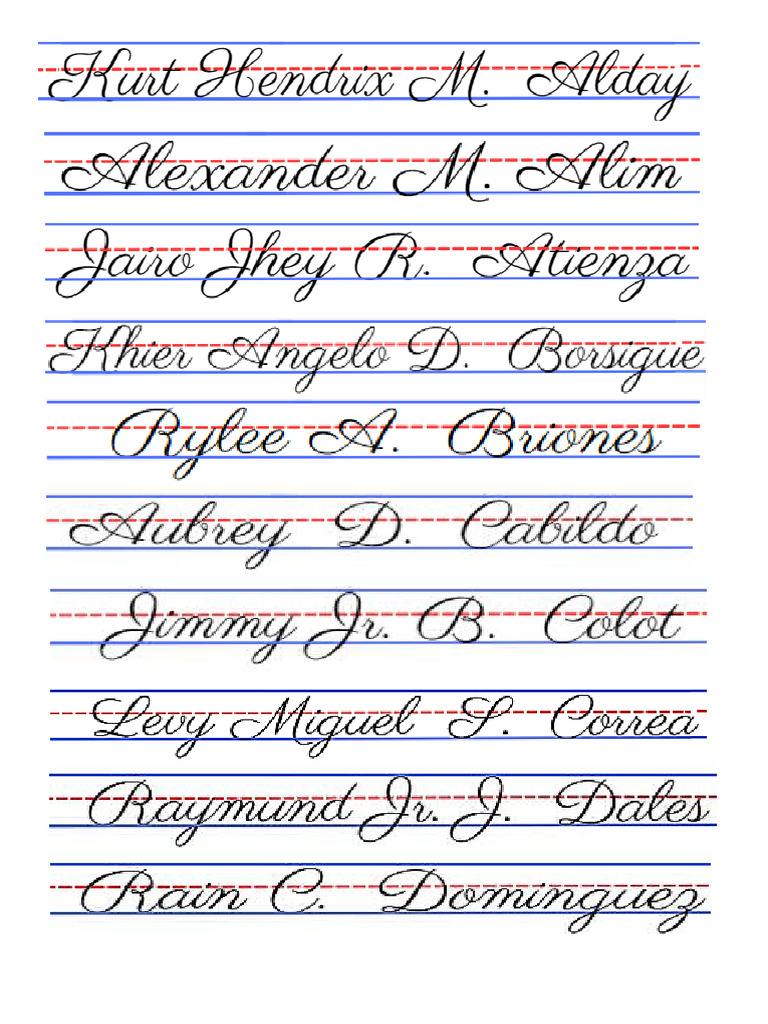 Kurt Hendrix M. Alday
Alexander M. Alim
Jairo Jhey R. Atienza
Khier Angelo D. Borsigue
Rylee A. Briones
Aubrey D. Cabildo
Jimmy Jr. B. Colot
Levy Miguel S. Correa
Raymund Jr. J. Dales
Rain C. Dominguez